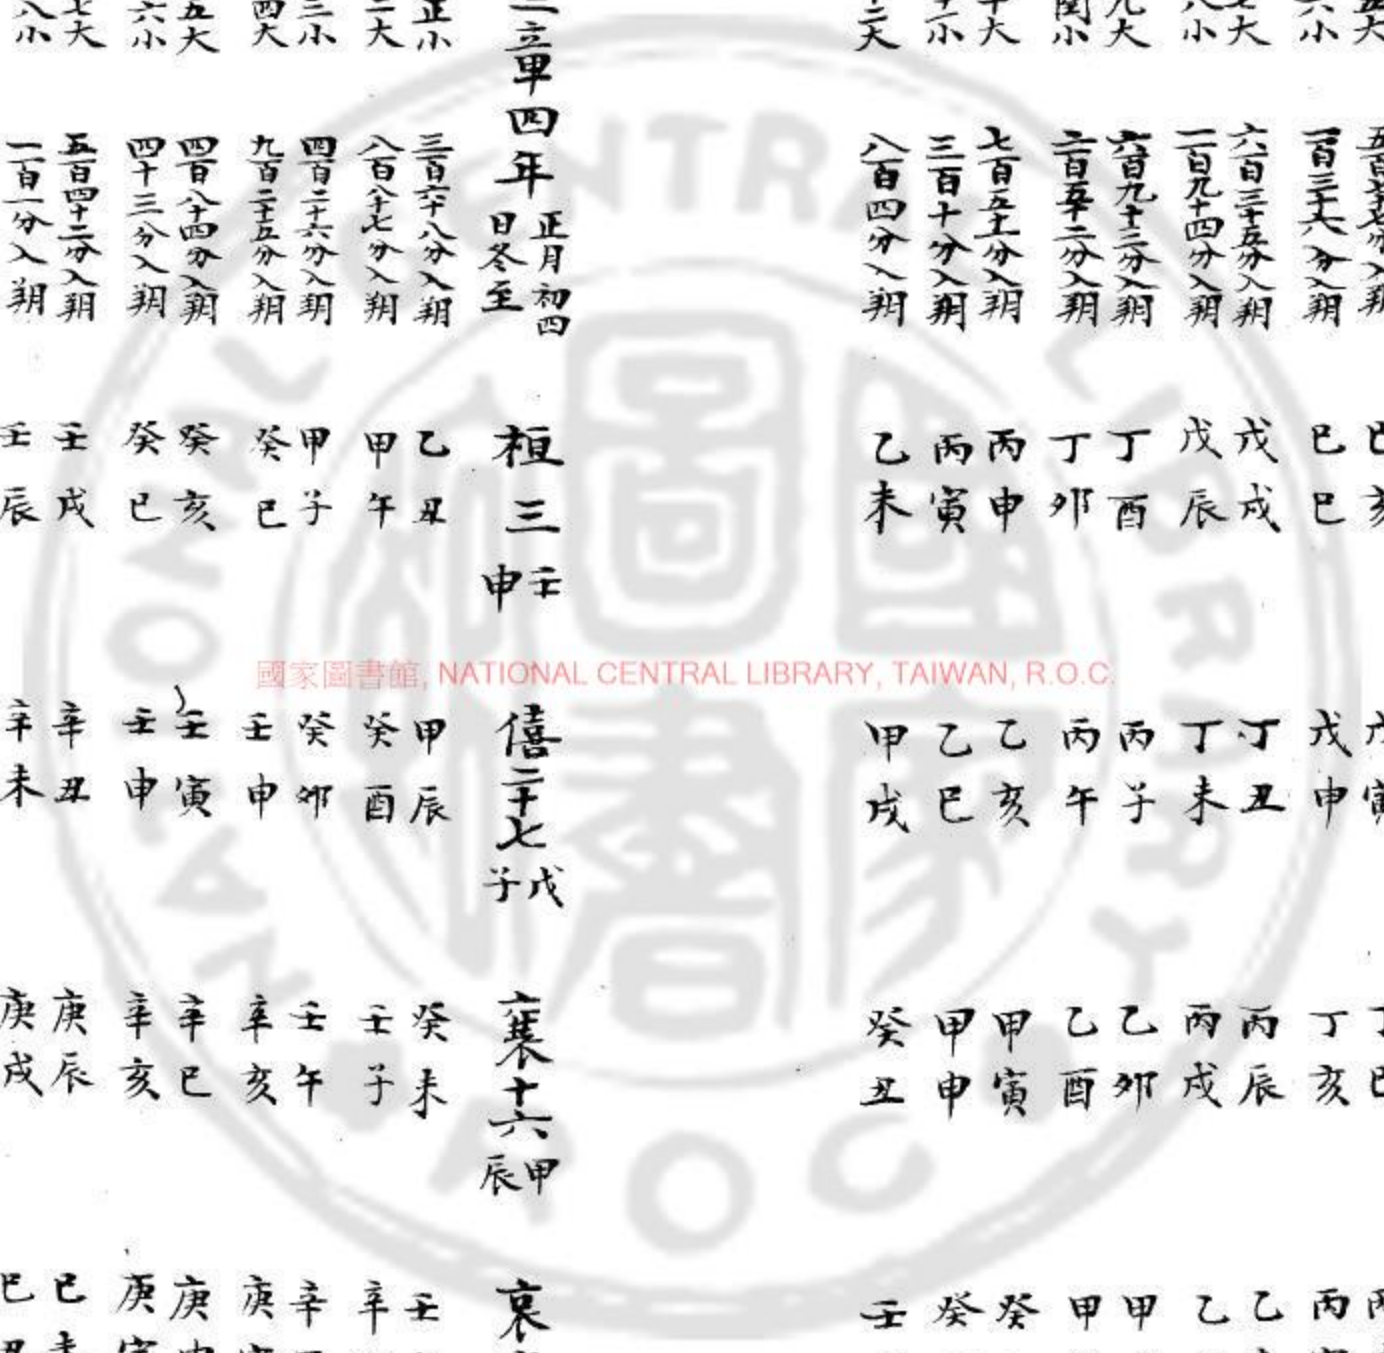 五大 五百七十七分入朔 己亥 戊寅 丁巳 丙
六小 一百三十六分入朔 己巳 戊申 丁亥 丙
七大 六百三十五分入朔 戊戌 丁丑 丙辰 乙
八小 一百九十四分入朔 戊辰 丁未 丙戌 乙
九大 六百九十三分入朔 丁酉 丙子 乙卯 甲
閏小 二百五十二分入朔 丁卯 丙午 乙酉 甲
十大 七百五十一分入朔 丙申 乙亥 甲寅 癸
十一小 三百十分入朔 丙寅 乙巳 甲申 癸
十二大 八百四分入朔 乙未 甲戌 癸丑 壬
二章四年 正月初四日冬至 桓三 壬申 僖二十七 戊子 襄十六 甲辰 哀
正小 三百六十八分入朔 乙丑 甲辰 癸未 壬
二大 八百八十七分入朔 甲午 癸酉 壬子 辛
三小 四百二十六分入朔 甲子 癸卯 壬午 辛
四大 九百二十五分入朔 癸巳 壬申 辛亥 庚
五大 四百八十四分入朔 癸亥 壬寅 辛巳 庚
六小 四十三分入朔 癸巳 壬申 辛亥 庚
七大 五百四十二分入朔 壬戌 辛丑 庚辰 己
八小 一百一分入朔 壬辰 辛未 庚戌 己
國家圖書館, NATIONAL CENTRAL LIBRARY, TAIWAN, R.O.C.